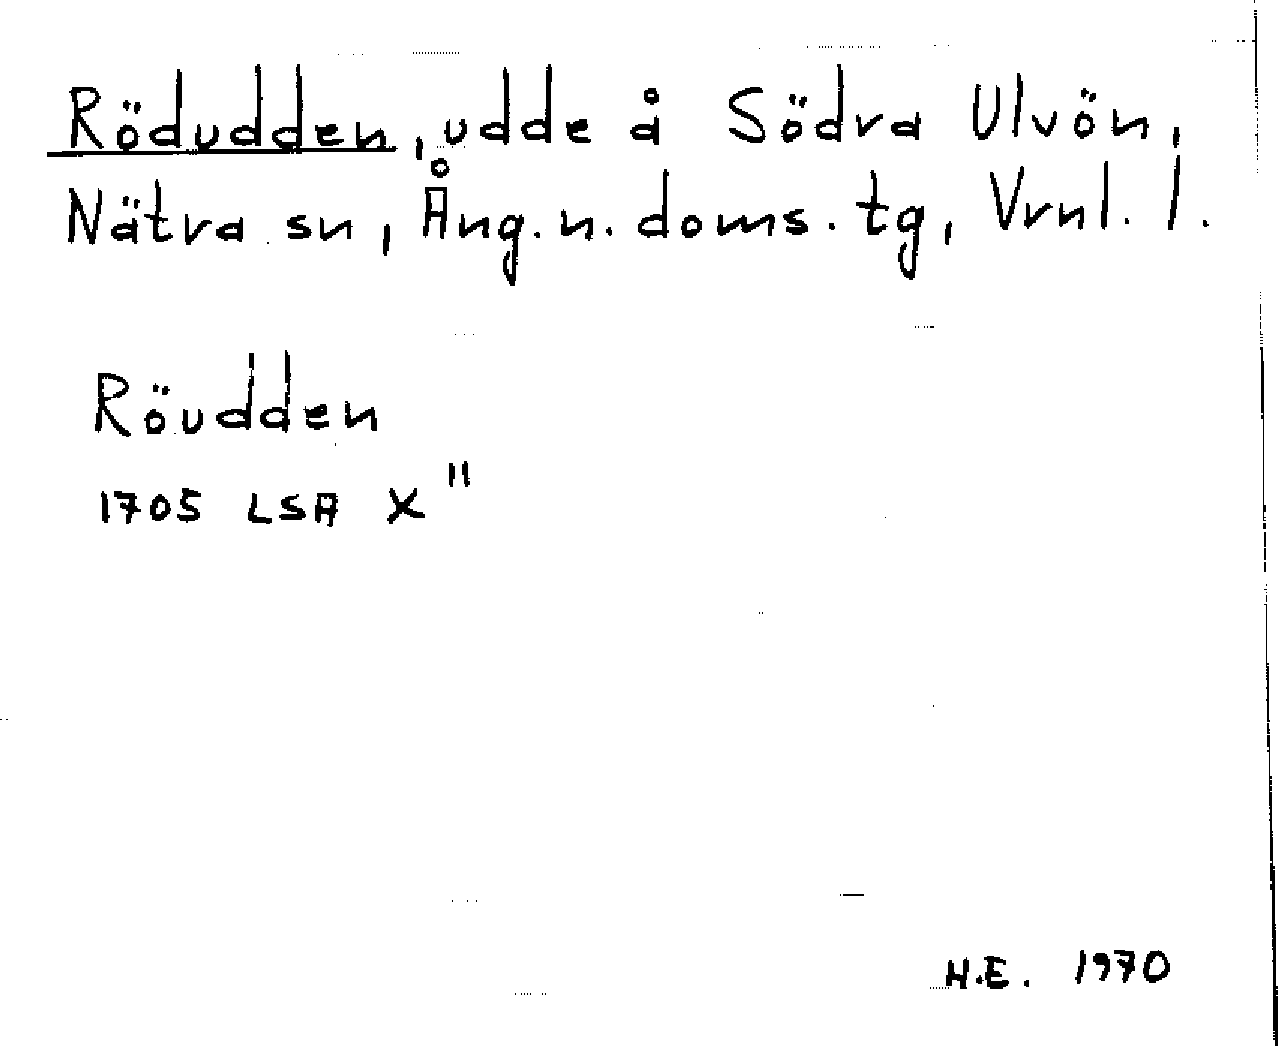 Rödudden, udde å Södra Ulvön,
Nätra sn, Ång. n. doms. tg, Vrnl. l.
Röudden
1705 LSA X"
H.E. 1970